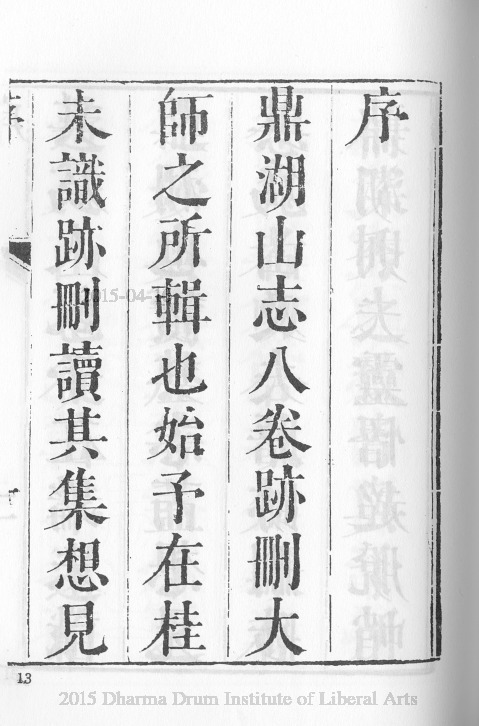 序
鼎湖山志八卷跡刪大
師之所輯也始予在桂
未識跡刪讀其集想見
13
2015-04-1
2015 Dharma Drum Institute of Liberal Arts